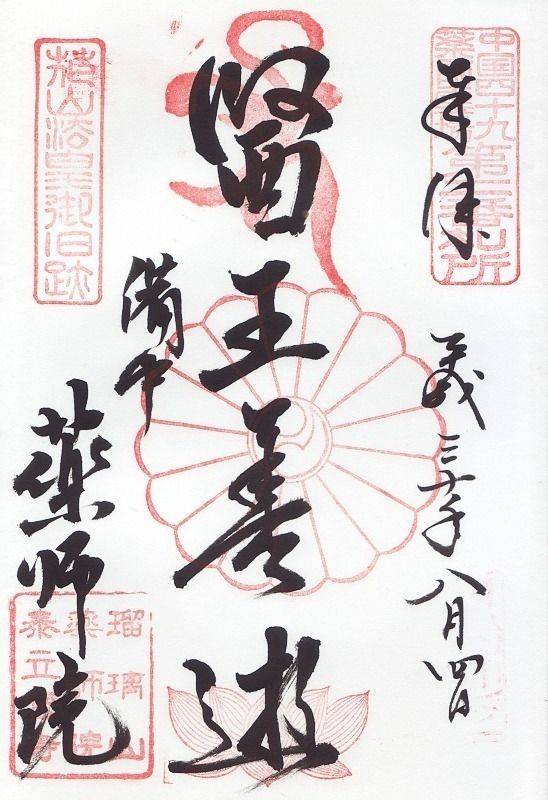 中国四十九
薬師第二番
霊場札所
奉拝
平成三十年八月四日
医王善逝
花山法皇御旧跡
備中
薬師院
瑠璃山
薬師院
泰立寺